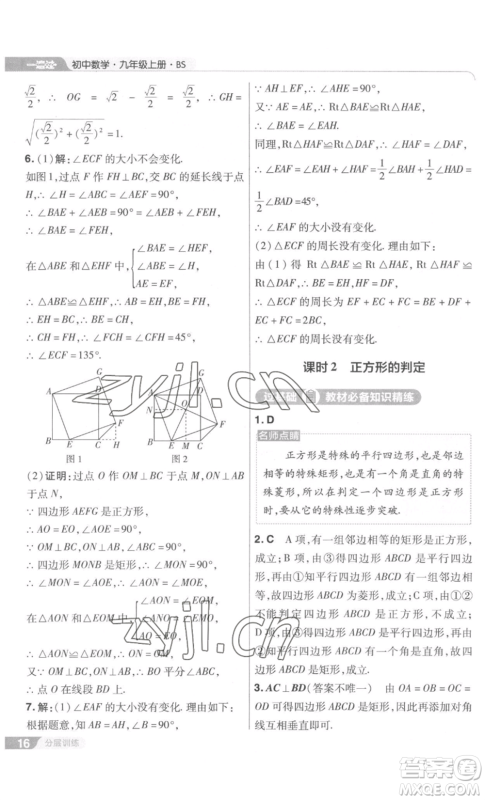 一遍过
初中数学·九年级上册·BS
√2/2, ∴ OG = √2 − √2/2 = √2/2, ∴ GH =
√((√2/2)²+(√2/2)²) = 1.
6. (1)解:∠ECF 的大小不会变化.
如图1,过点 F 作 FH⊥BC,交 BC 的延长线于点
H,∴ ∠HEF = ∠ABC = ∠AEF = 90°,
∴ ∠BAE + ∠AEB = 90° = ∠AEB + ∠FEH,
∴ ∠BAE = ∠FEH,
在△ABE 和△EHF 中, { ∠BAE = ∠HEF,
∠ABE = ∠H,
AE = EF,
∴ △ABE≌△EHF, ∴ AB = EH, BE = FH,
∴ CH = FH, ∴ ∠HCF = ∠CFH = 45°,
∴ ∠ECF = 135°.
G
D
A
F
B E C H
图1
G
D
A
O
N
F
B E M C
图2
(2)证明:过点 O 作 OM⊥BC 于点 M, ON⊥AB
于点 N,
∵ 四边形 AEFG 是正方形,
∴ AO = EO, ∠AOE = 90°,
∵ OM⊥BC, ON⊥AB, ∠ABC = 90°,
∴ 四边形 ONBM 是矩形, ∴ ∠MON = 90°,
∴ ∠MON = ∠AOE, ∴ ∠AON = ∠MOE,
在△AON 和△EOM 中, { ∠ANO = ∠EMO,
∠AON = ∠EOM,
AO = EO,
∴ △AON≌△EOM, ∴ ON = OM,
又∵ OM⊥BC, ON⊥AB, ∴ BO 平分∠ABC,
∴ 点 O 在∠ABC 的平分线上.
7. 解: (1)∠EAF 的大小没有变化. 理由如下:
根据题意,知 AB = AH, ∠B = 90°,
16 分层训练
∵ AH⊥EF, ∴ ∠BAE = ∠HAE,
又∵ AE = AE, ∴ Rt△BAE≌Rt△HAE,
∴ ∠BAE = ∠HAE,
同理, Rt△HAF≌Rt△DAF, ∴ ∠HAF = ∠DAF,
∴ ∠EAF = 1/2∠BAH + 1/2∠HAD =
1/2∠BAD = 45°,
∴ ∠EAF 的大小没有变化.
(2) △ECF 的周长没有变化. 理由如下:
由(1)得 Rt△BAE≌Rt△HAE, Rt△HAF≌
Rt△DAF, ∴ BE = HE, HF = DF,
∴ △ECF 的周长为 EF + EC + FC = BE + DF +
EC + FC = 2BC,
∴ △ECF 的周长没有变化.
课时2 正方形的判定
过基础 教材必备知识精练
1. D
名师点睛
正方形是特殊的平行四边形,也是邻
边相等的特殊矩形,有一个角是直角的特
殊菱形,所以在判定四边形是正方形
时,要根据它的特殊性逐步突破.
2. C A 项,有一组邻边相等的矩形是正方形,
成立;B 项,由③得四边形 ABCD 是平行四边
形,再由①得四边形 ABCD 是菱形,再由②得
四边形 ABCD 是正方形,成立;C 项,由①②
不能判定四边形 ABCD 是正方形,不成立;D
项,由③得四边形 ABCD 是平行四边形,再由②
得四边形 ABCD 是矩形,又有①,故四
边形 ABCD 是正方形,成立.故选 C.
3. AC⊥BD(答案不唯一) 由 OA = OB = OC =
OD,可得四边形 ABCD 是矩形,故再添加对角
线互相垂直即可.
zyjl.cn
zyjl.cn
作业精灵